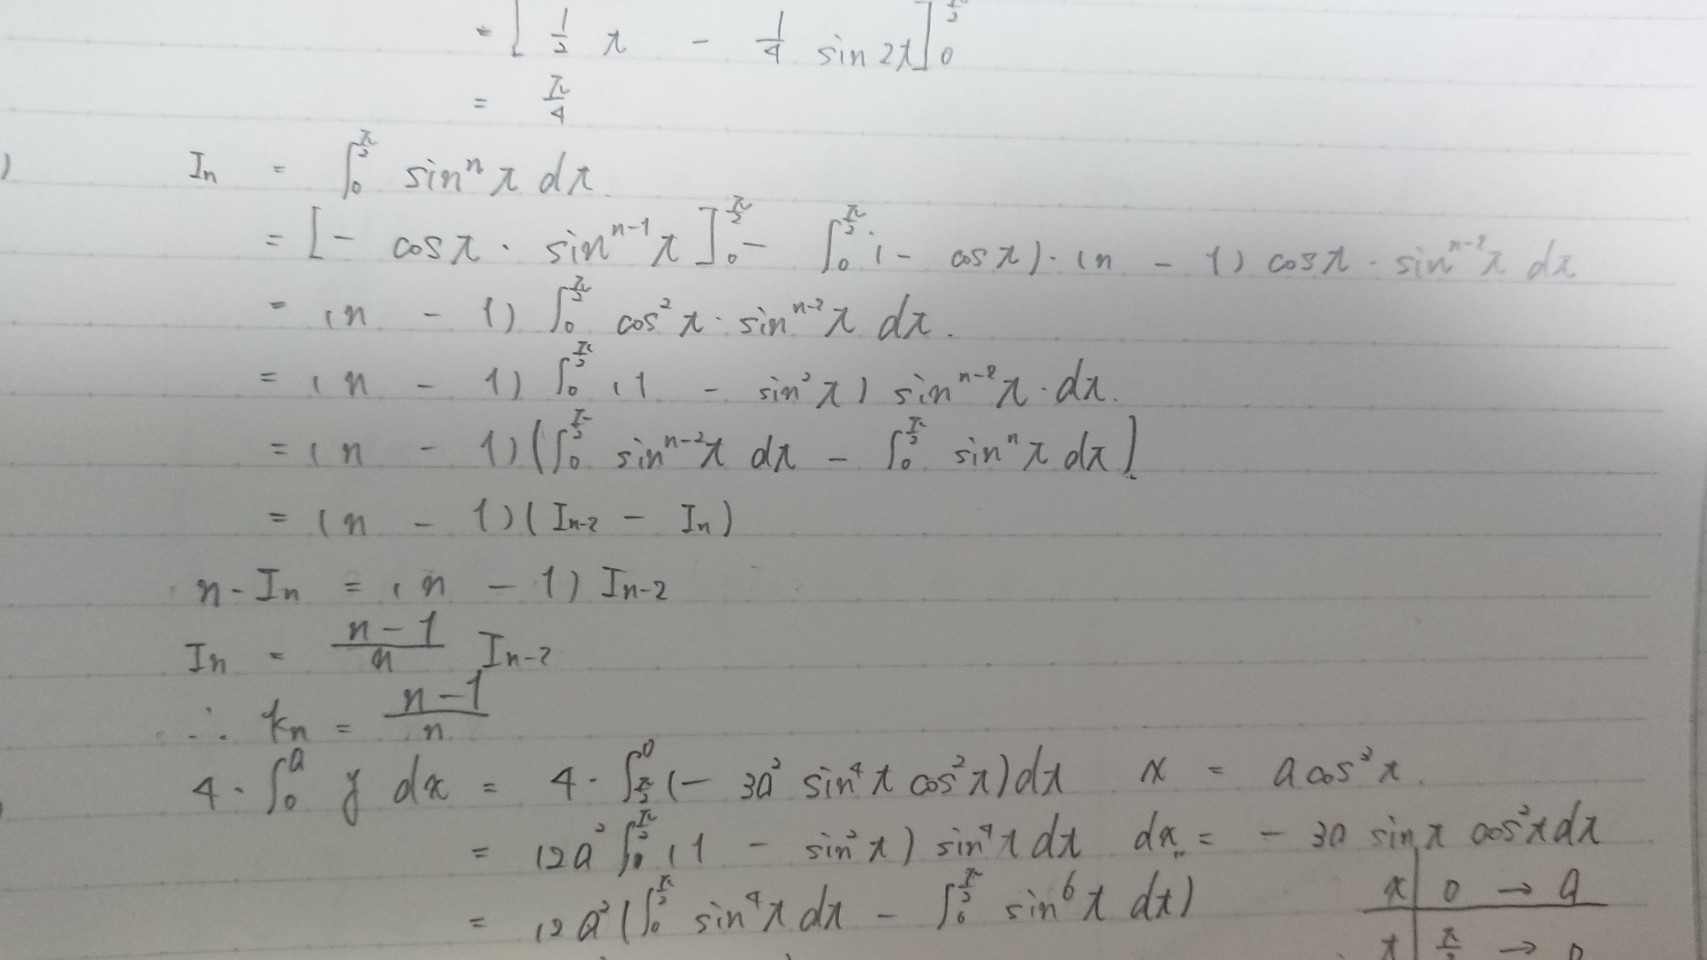 = [ 1/2 t - 1/4 sin 2t ]_0^{π/2}
= π/4
) I_n = ∫_0^{π/2} sin^n t dt.
= [ - cos t · sin^{n-1} t ]_0^{π/2} - ∫_0^{π/2} (- cos t) · (n - 1) cos t · sin^{n-2} t dt
= (n - 1) ∫_0^{π/2} cos^2 t · sin^{n-2} t dt.
= (n - 1) ∫_0^{π/2} (1 - sin^2 t) sin^{n-2} t · dt.
= (n - 1) ( ∫_0^{π/2} sin^{n-2} t dt - ∫_0^{π/2} sin^n t dt ]
= (n - 1) (I_{n-2} - I_n)
n · I_n = (n - 1) I_{n-2}
I_n = (n-1)/n I_{n-2}
∴ k_n = (n-1)/n
4 · ∫_0^a y dx = 4 · ∫_{π/2}^0 (- 3a^2 sin^4 t cos^2 t) dt x = a cos^3 t.
= 12a^2 ∫_0^{π/2} (1 - sin^2 t) sin^4 t dt dx = - 3a sin t cos^2 t dt
= 12a^2 ( ∫_0^{π/2} sin^4 t dt - ∫_0^{π/2} sin^6 t dt ) x | 0 → a
t | π/2 → 0